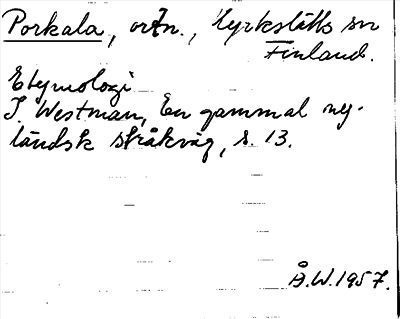 Porkala, ortn., Kyrkslätts sn
Finland.
Etymologi
I. Westman, En gammal ny-
ländsk stråkväg, s. 13.
Å.W. 1957.